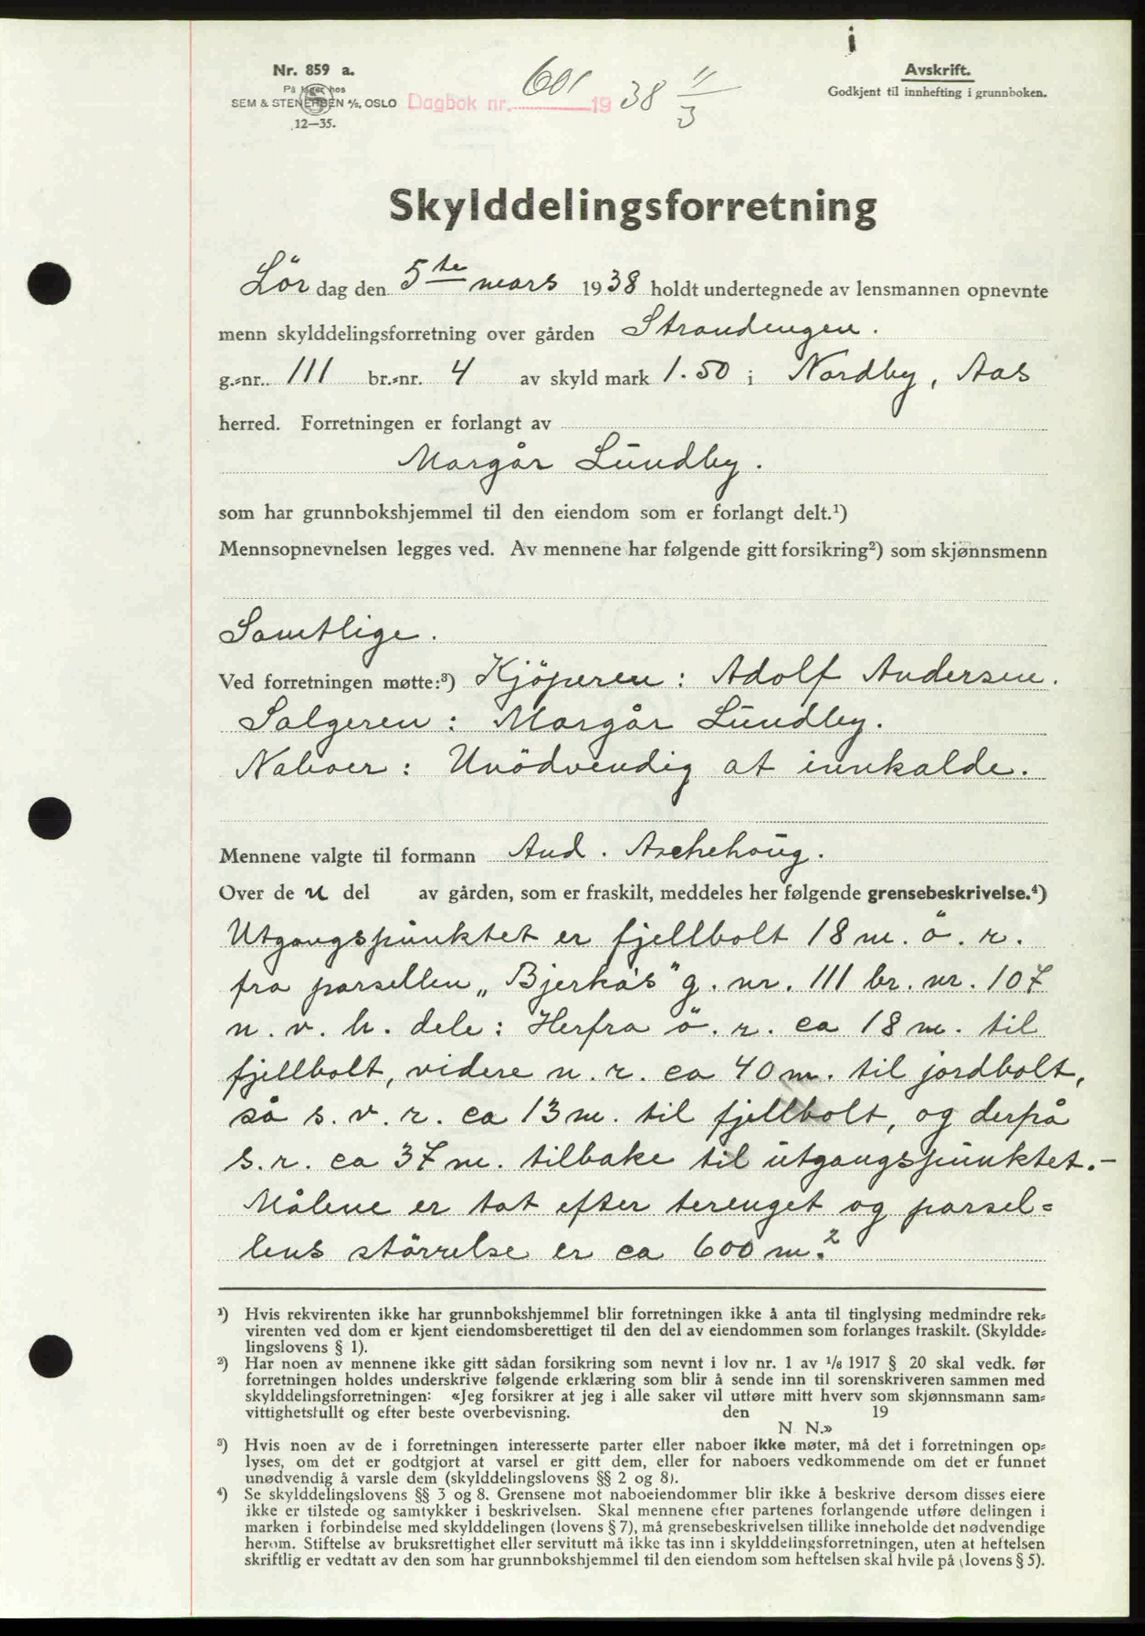 i
Nr. 859 a.
På lager hos
SEM & STENERSEN A/S, OSLO
12—35.
Dagbok nr. 601 1938 11/3
Avskrift.
Godkjent til innhefting i grunnboken.
Skylddelingsforretning
Lör dag den 5te mars 1938 holdt undertegnede av lensmannen opnevnte
menn skylddelingsforretning over gården Strandengen.
g.-nr. 111 br.-nr. 4 av skyld mark 1.50 i Nordby, Aas
herred. Forretningen er forlangt av
Margår Lundby.
som har grunnbokshjemmel til den eiendom som er forlangt delt.¹)
Mennsopnevnelsen legges ved. Av mennene har følgende gitt forsikring²) som skjønnsmenn
Samtlige.
Ved forretningen møtte:³) Kjöperen: Adolf Andersen.
Salgeren: Margår Lundby.
Naboer: Unödvendig at innkalde.
Mennene valgte til formann And. Aschehoug.
Over de n del av gården, som er fraskilt, meddeles her følgende grensebeskrivelse.⁴)
Utgangspunktet er fjellbolt 18 m. ö. r.
fra parsellen „Bjerkås" g. nr. 111 br. nr. 107
n. v. h. dele: Herfra ö. r. ca 18 m. til
fjellbolt, videre n. r. ca 40 m. til jordbolt,
så s. v. r. ca 13 m. til fjellbolt, og derpå
s. r. ca 37 m. tilbake til utgangspunktet.-
Målene er tat efter terenget og parsel=
lens störrelse er ca 600 m.²
¹) Hvis rekvirenten ikke har grunnbokshjemmel blir forretningen ikke å anta til tinglysing medmindre rek-
virenten ved dom er kjent eiendomsberettiget til den del av eiendommen som forlanges fraskilt. (Skyldde-
lingslovens § 1).
²) Har noen av mennene ikke gitt sådan forsikring som nevnt i lov nr. 1 av 1/8 1917 § 20 skal vedk. før
forretningen holdes underskrive følgende erklæring som blir å sende inn til sorenskriveren sammen med
skylddelingsforretningen: «Jeg forsikrer at jeg i alle saker vil utføre mitt hverv som skjønnsmann sam-
vittighetsfullt og efter beste overbevisning. den 19
N. N.»
³) Hvis noen av de i forretningen interesserte parter eller naboer ikke møter, må det i forretningen op-
lyses, om det er godtgjort at varsel er gitt dem, eller for naboers vedkommende om det er funnet
unødvendig å varsle dem (skylddelingslovens §§ 2 og 8).
⁴) Se skylddelingslovens §§ 3 og 8. Grensene mot naboeiendommer blir ikke å beskrive dersom disses eiere
ikke er tilstede og samtykker i beskrivelsen. Skal mennene efter partenes forlangende utføre delingen i
marken i forbindelse med skylddelingen (lovens § 7), må grensebeskrivelsen tillike inneholde det nødvendige
herom. Stiftelse av bruksrettighet eller servitutt må ikke tas inn i skylddelingsforretningen, uten at heftelsen
skriftlig er vedtatt av den som har grunnbokshjemmel til den eiendom som heftelsen skal hvile på (lovens § 5).